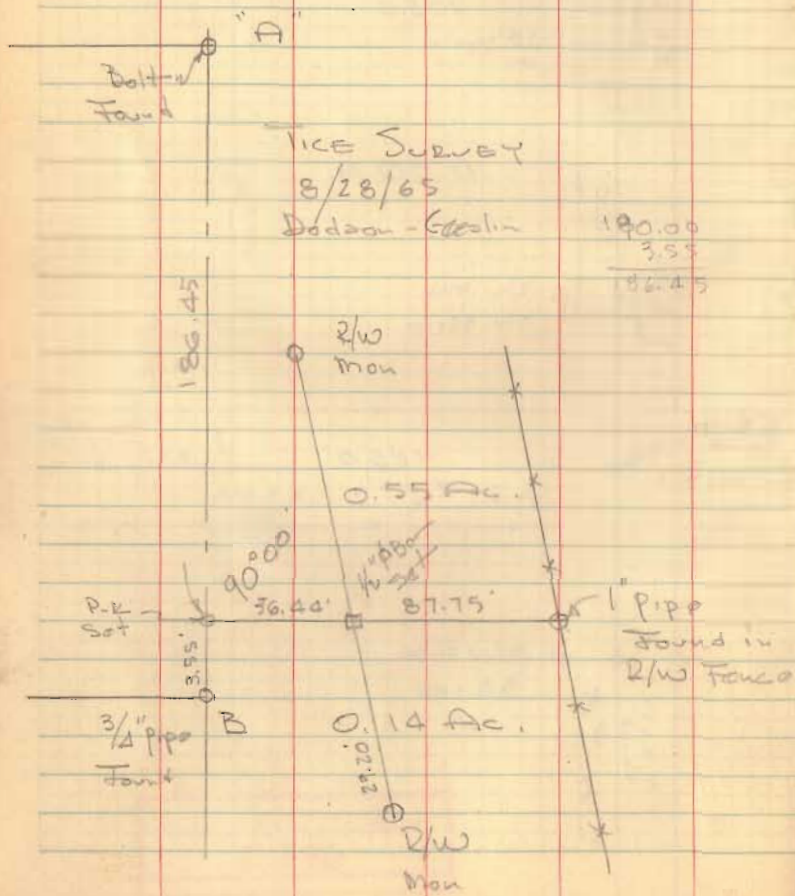 "A"
Bolt
Found
TICE SURVEY
8/28/65
Dodson -
190.00
3.55
186.45
186.45
R/W
Mon
0.55 Ac.
90°00'
1/2"
Set
P-K
Set
56.44'
87.75'
1" pipe
Found in
R/W Fence
3.55'
B
3/4" pipe
Found
0.14 Ac.
29.20'
R/W
Mon